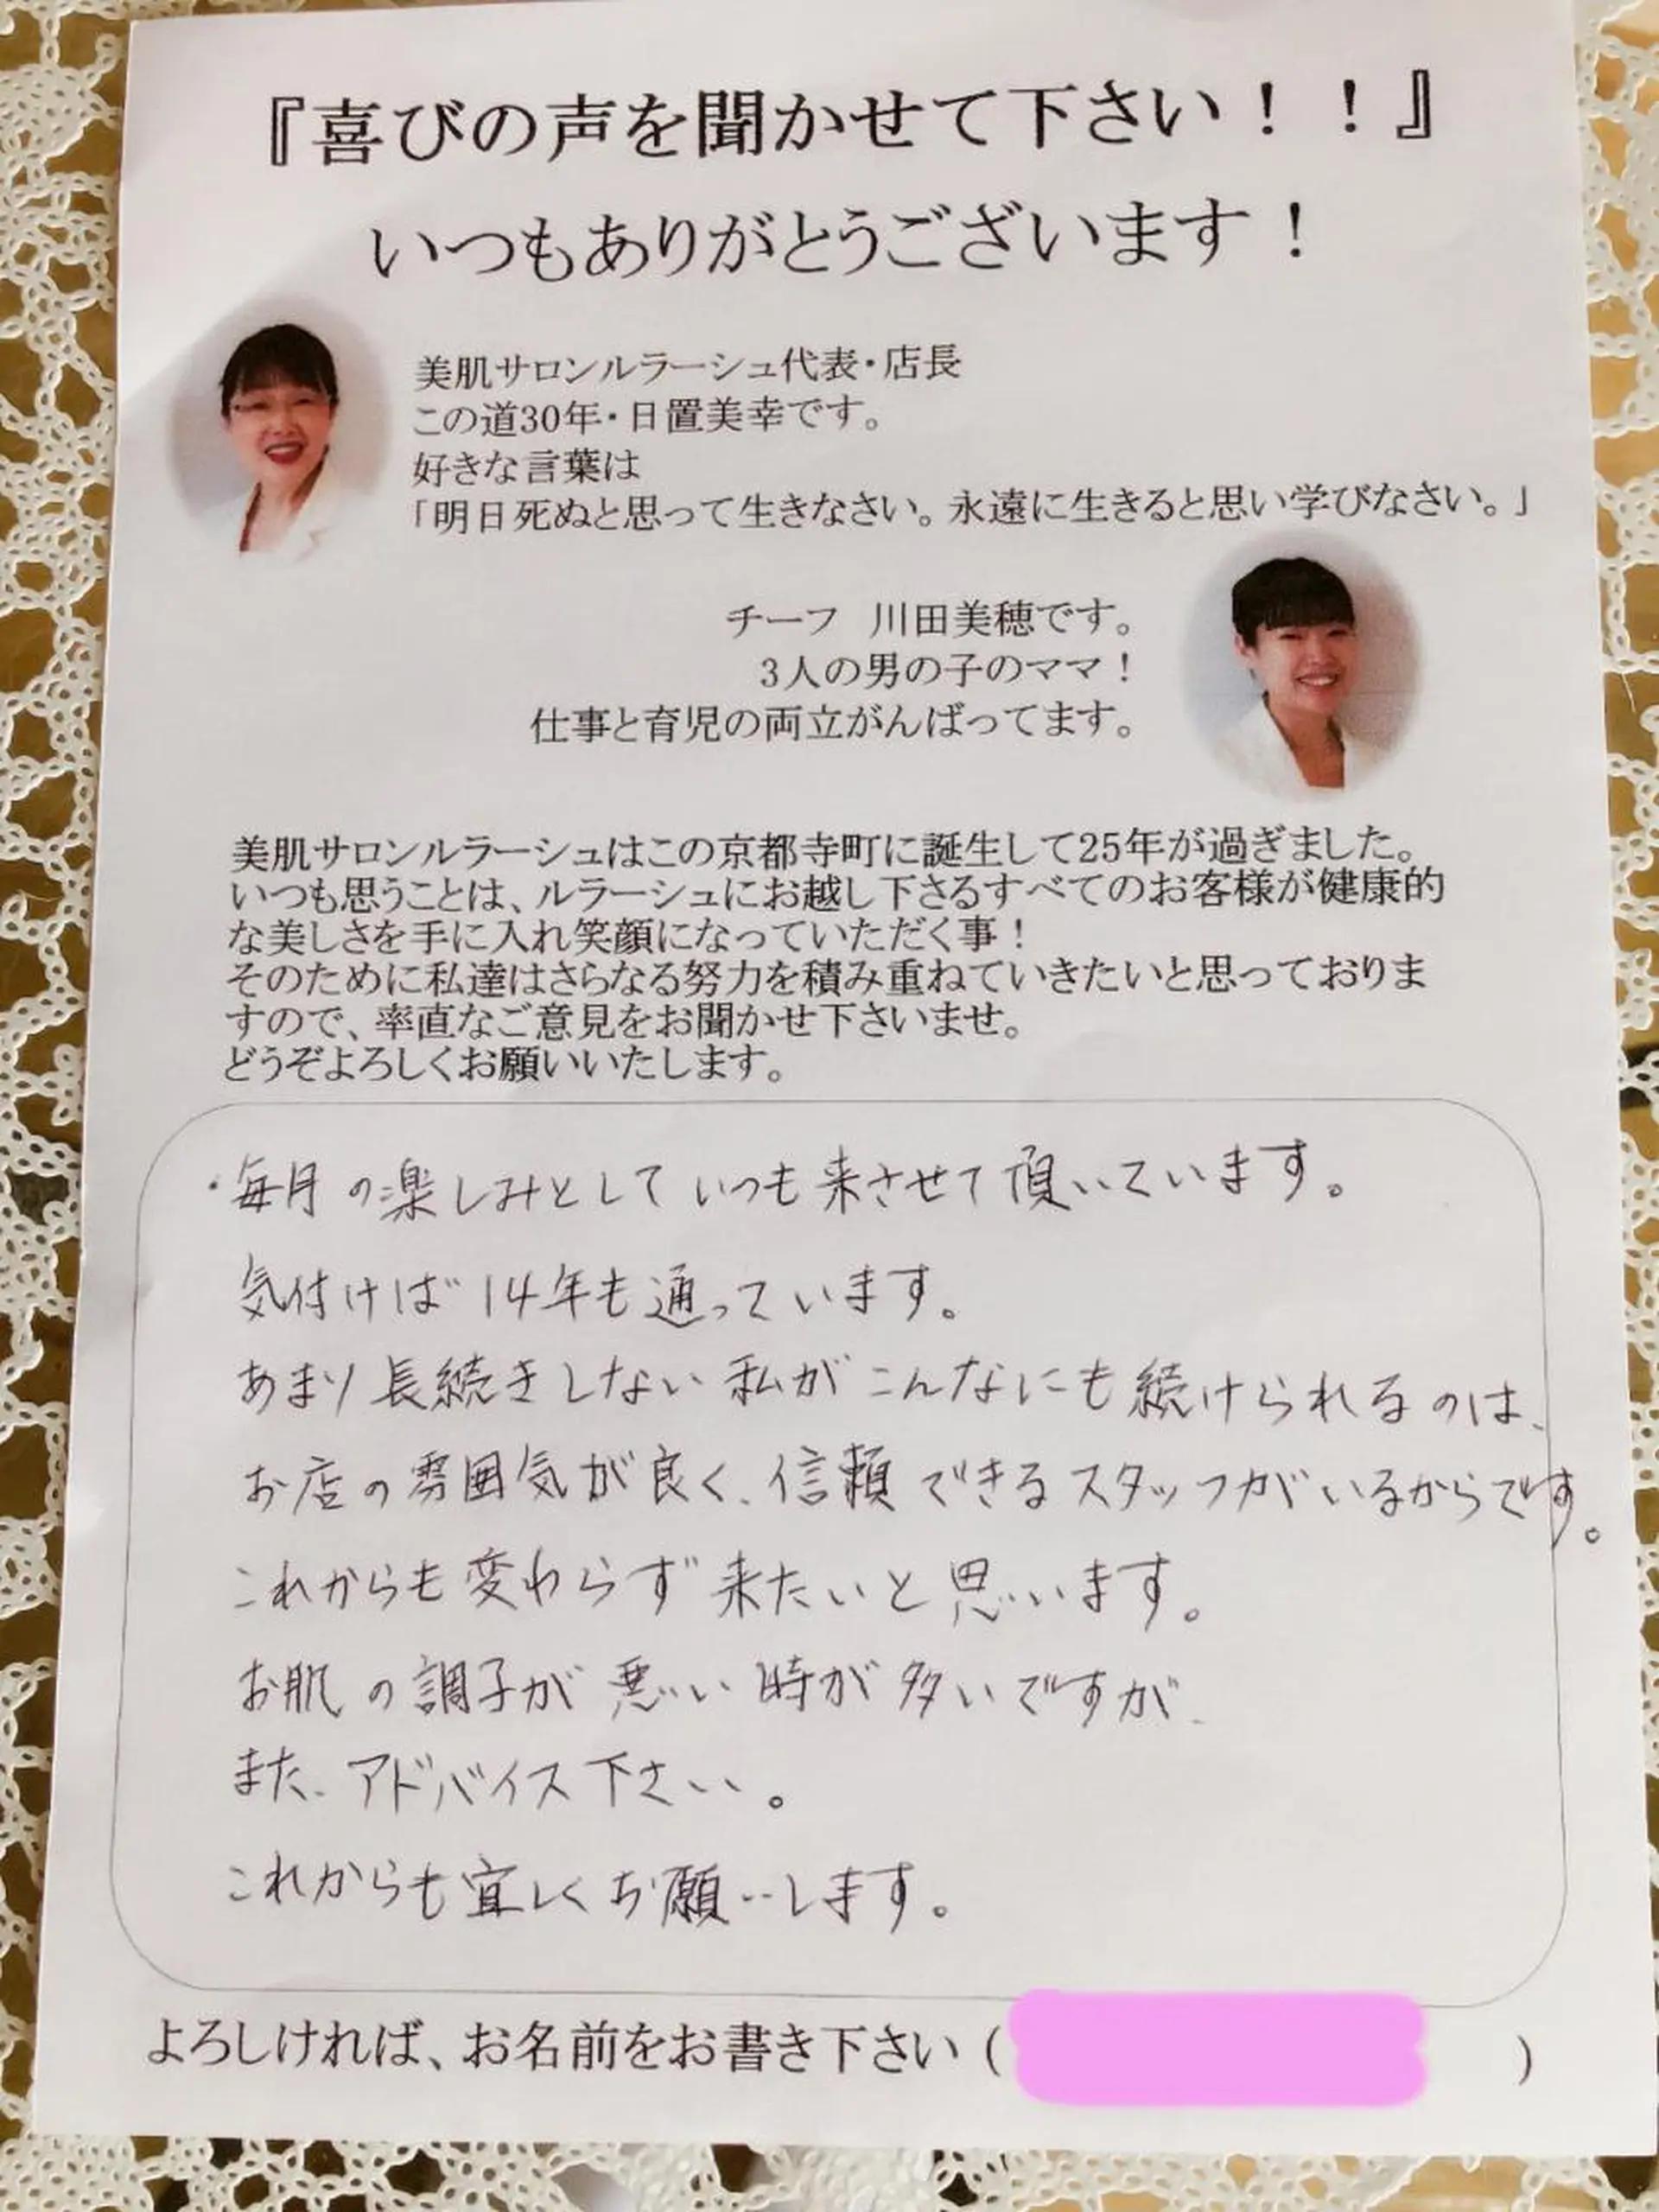 『喜びの声を聞かせて下さい！！』
いつもありがとうございます！
美肌サロンルラーシュ代表・店長
この道30年・日置美幸です。
好きな言葉は
「明日死ぬと思って生きなさい。永遠に生きると思い学びなさい。」
チーフ　川田美穂です。
3人の男の子のママ！
仕事と育児の両立がんばってます。
美肌サロンルラーシュはこの京都寺町に誕生して25年が過ぎました。
いつも思うことは、ルラーシュにお越し下さるすべてのお客様が健康的
な美しさを手に入れ笑顔になっていただく事！
そのために私達はさらなる努力を積み重ねていきたいと思っておりま
すので、率直なご意見をお聞かせ下さいませ。
どうぞよろしくお願いいたします。
・毎月の楽しみとしていつも来させて頂いています。
気付けば14年も通っています。
あまり長続きしない私がこんなにも続けられるのは、
お店の雰囲気が良く、信頼できるスタッフがいるからです。
これからも変わらず来たいと思います。
お肌の調子が悪い時が多いですが、
また、アドバイス下さい。
これからも宜しくお願いします。
よろしければ、お名前をお書き下さい（　　　）